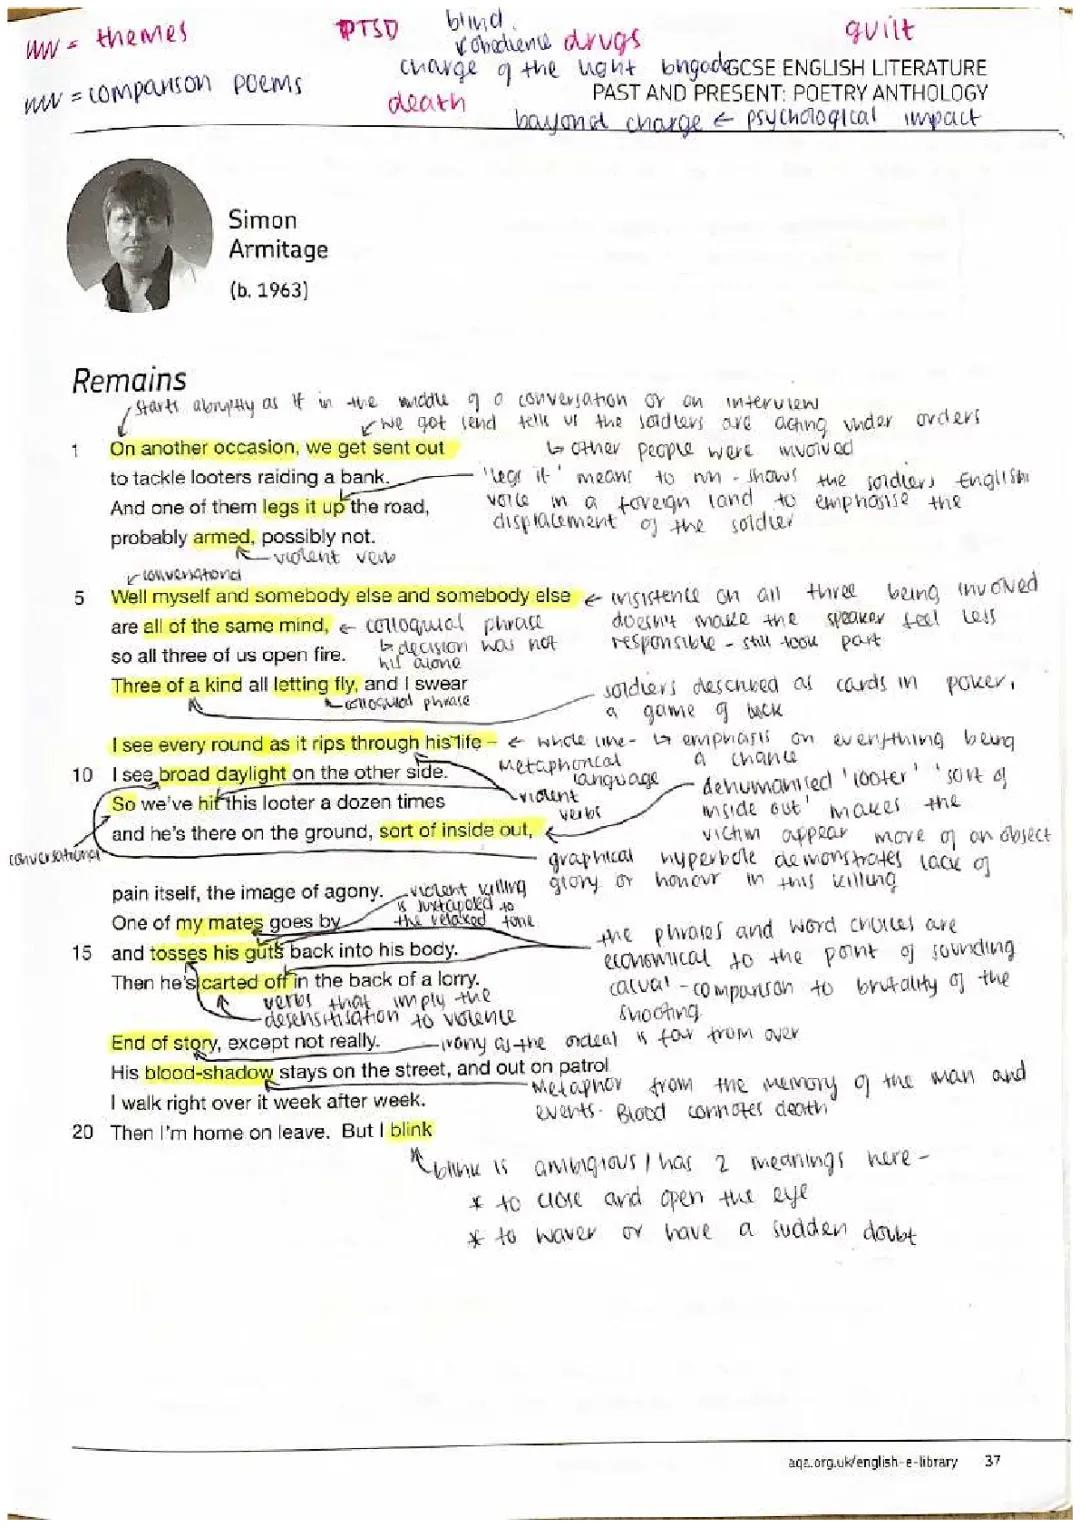 mw = themes
PTSD
blind
obedience
drugs
guilt
mw = comparison poems
charge of the light brigade
GCSE ENGLISH LITERATURE
death
PAST AND PRESENT: POETRY ANTHOLOGY
bayonet charge ← psychological impact
Simon
Armitage
(b. 1963)
Remains
starts abruptly as if in the middle of a conversation or an interview
we got send tell us the soldiers are acting under orders
1 On another occasion, we get sent out
↳ other people were involved
to tackle looters raiding a bank.
And one of them legs it up the road,
probably armed, possibly not.
'legs it' means to run - shows the soldiers English
voice in a foreign land to emphasise the
displacement of the soldier
violent verb
conversational
5 Well myself and somebody else and somebody else
are all of the same mind,
← colloquial phrase
so all three of us open fire.
↳ decision was not
his alone
← insistence on all three being involved
doesn't make the speaker feel less
responsible - still took part
Three of a kind all letting fly, and I swear
colloquial phrase
soldiers described as cards in poker,
a game of luck
I see every round as it rips through his life –
← whole line - ↳ emphasis on everything being
a chance
10 I see broad daylight on the other side.
metaphorical
language
So we've hit this looter a dozen times
violent
verbs
and he's there on the ground, sort of inside out,
dehumanised 'looter' 'sort of
inside out' makes the
victim appear more of an object
conversational
graphical hyperbole demonstrates lack of
glory or honour in this killing
pain itself, the image of agony.
violent killing
is juxtaposed to
the relaxed tone
One of my mates goes by
15 and tosses his guts back into his body.
Then he's carted off in the back of a lorry.
the phrases and word choices are
economical to the point of sounding
casual - comparison to brutality of the
shooting
verbs that imply the
desensitisation to violence
End of story, except not really.
irony as the ordeal is far from over
His blood-shadow stays on the street, and out on patrol
I walk right over it week after week.
metaphor from the memory of the man and
events. Blood connotes death
20 Then I'm home on leave. But I blink
blink is ambigious / has 2 meanings here -
* to close and open the eye
* to waver or have a sudden doubt
aqa.org.uk/english-e-library 37